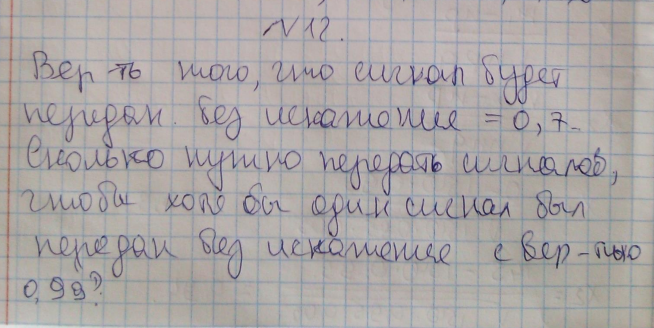 №12.
Вер-ть того, что сигнал будет
передан. без искажения = 0,7.
Сколько нужно передать сигналов,
чтобы хотя бы один сигнал был
передан без искажения с вер-тью
0,99?